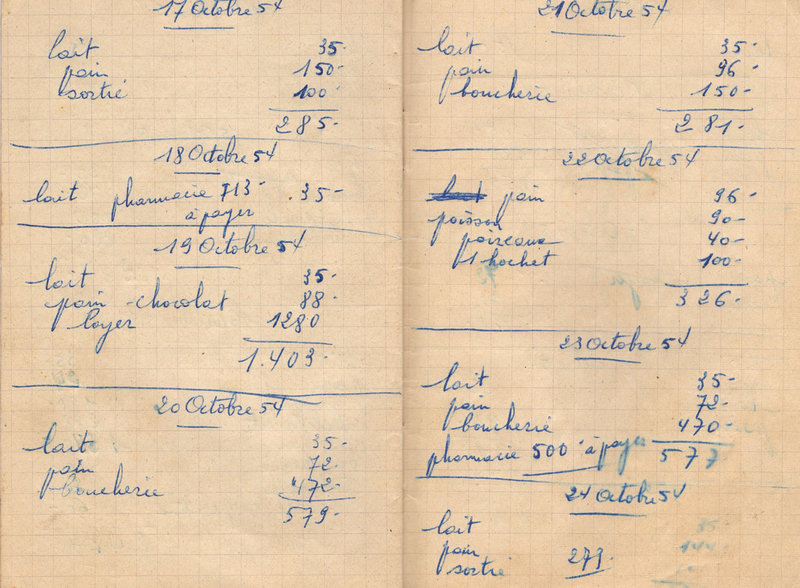 17 Octobre 54
lait 35-
pain 150-
sortié 100-
285-
18 Octobre 54
lait pharmacie 713- 35-
à payer
19 Octobre 54
lait 35-
pain - chocolat 88-
loyer 1280
1.403-
20 Octobre 54
lait 35-
pain 72-
boucherie 472-
579-
21 Octobre 54
lait 35-
pain 96-
boucherie 150-
281-
22 Octobre 54
lait pain 96-
poisson 90-
poireaux 40-
1 hochet 100-
326-
23 Octobre 54
lait 35-
pain 72-
boucherie 470-
pharmacie 500- à payer 577
24 Octobre 54
lait
pain
sortié 279.